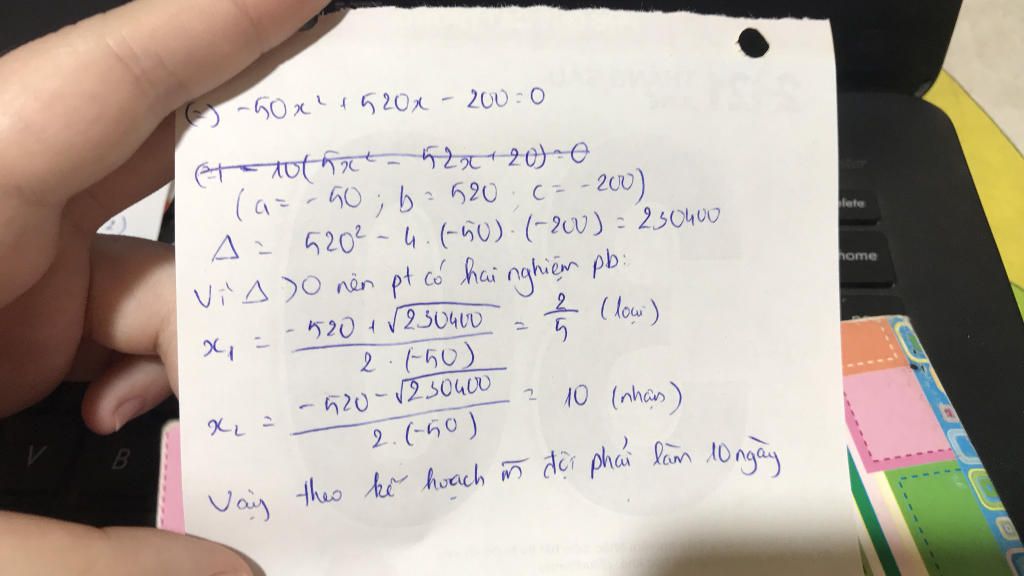 (=) -50x² + 520x - 200 = 0
(=) -10(5x² - 52x + 20) = 0
(a = -50 ; b = 520 ; c = -200)
Δ = 520² - 4 . (-50) . (-200) = 230400
Vì Δ > 0 nên pt có hai nghiệm pb:
x₁ = (-520 + √230400) / (2 . (-50)) = 2/5 (loại)
x₂ = (-520 - √230400) / (2 . (-50)) = 10 (nhận)
Vậy theo kế hoạch đội phải làm 10 ngày
V B
elete
home